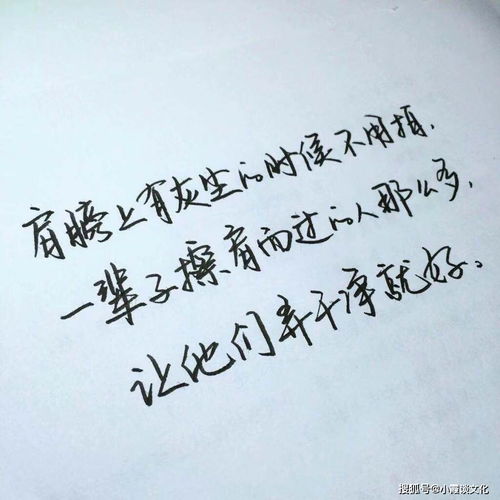 肩膀上有灰尘的时候不用拍.
一辈子擦肩而过的人那么多,
让他们弄干净就好。
搜狐号@小霞谈文化